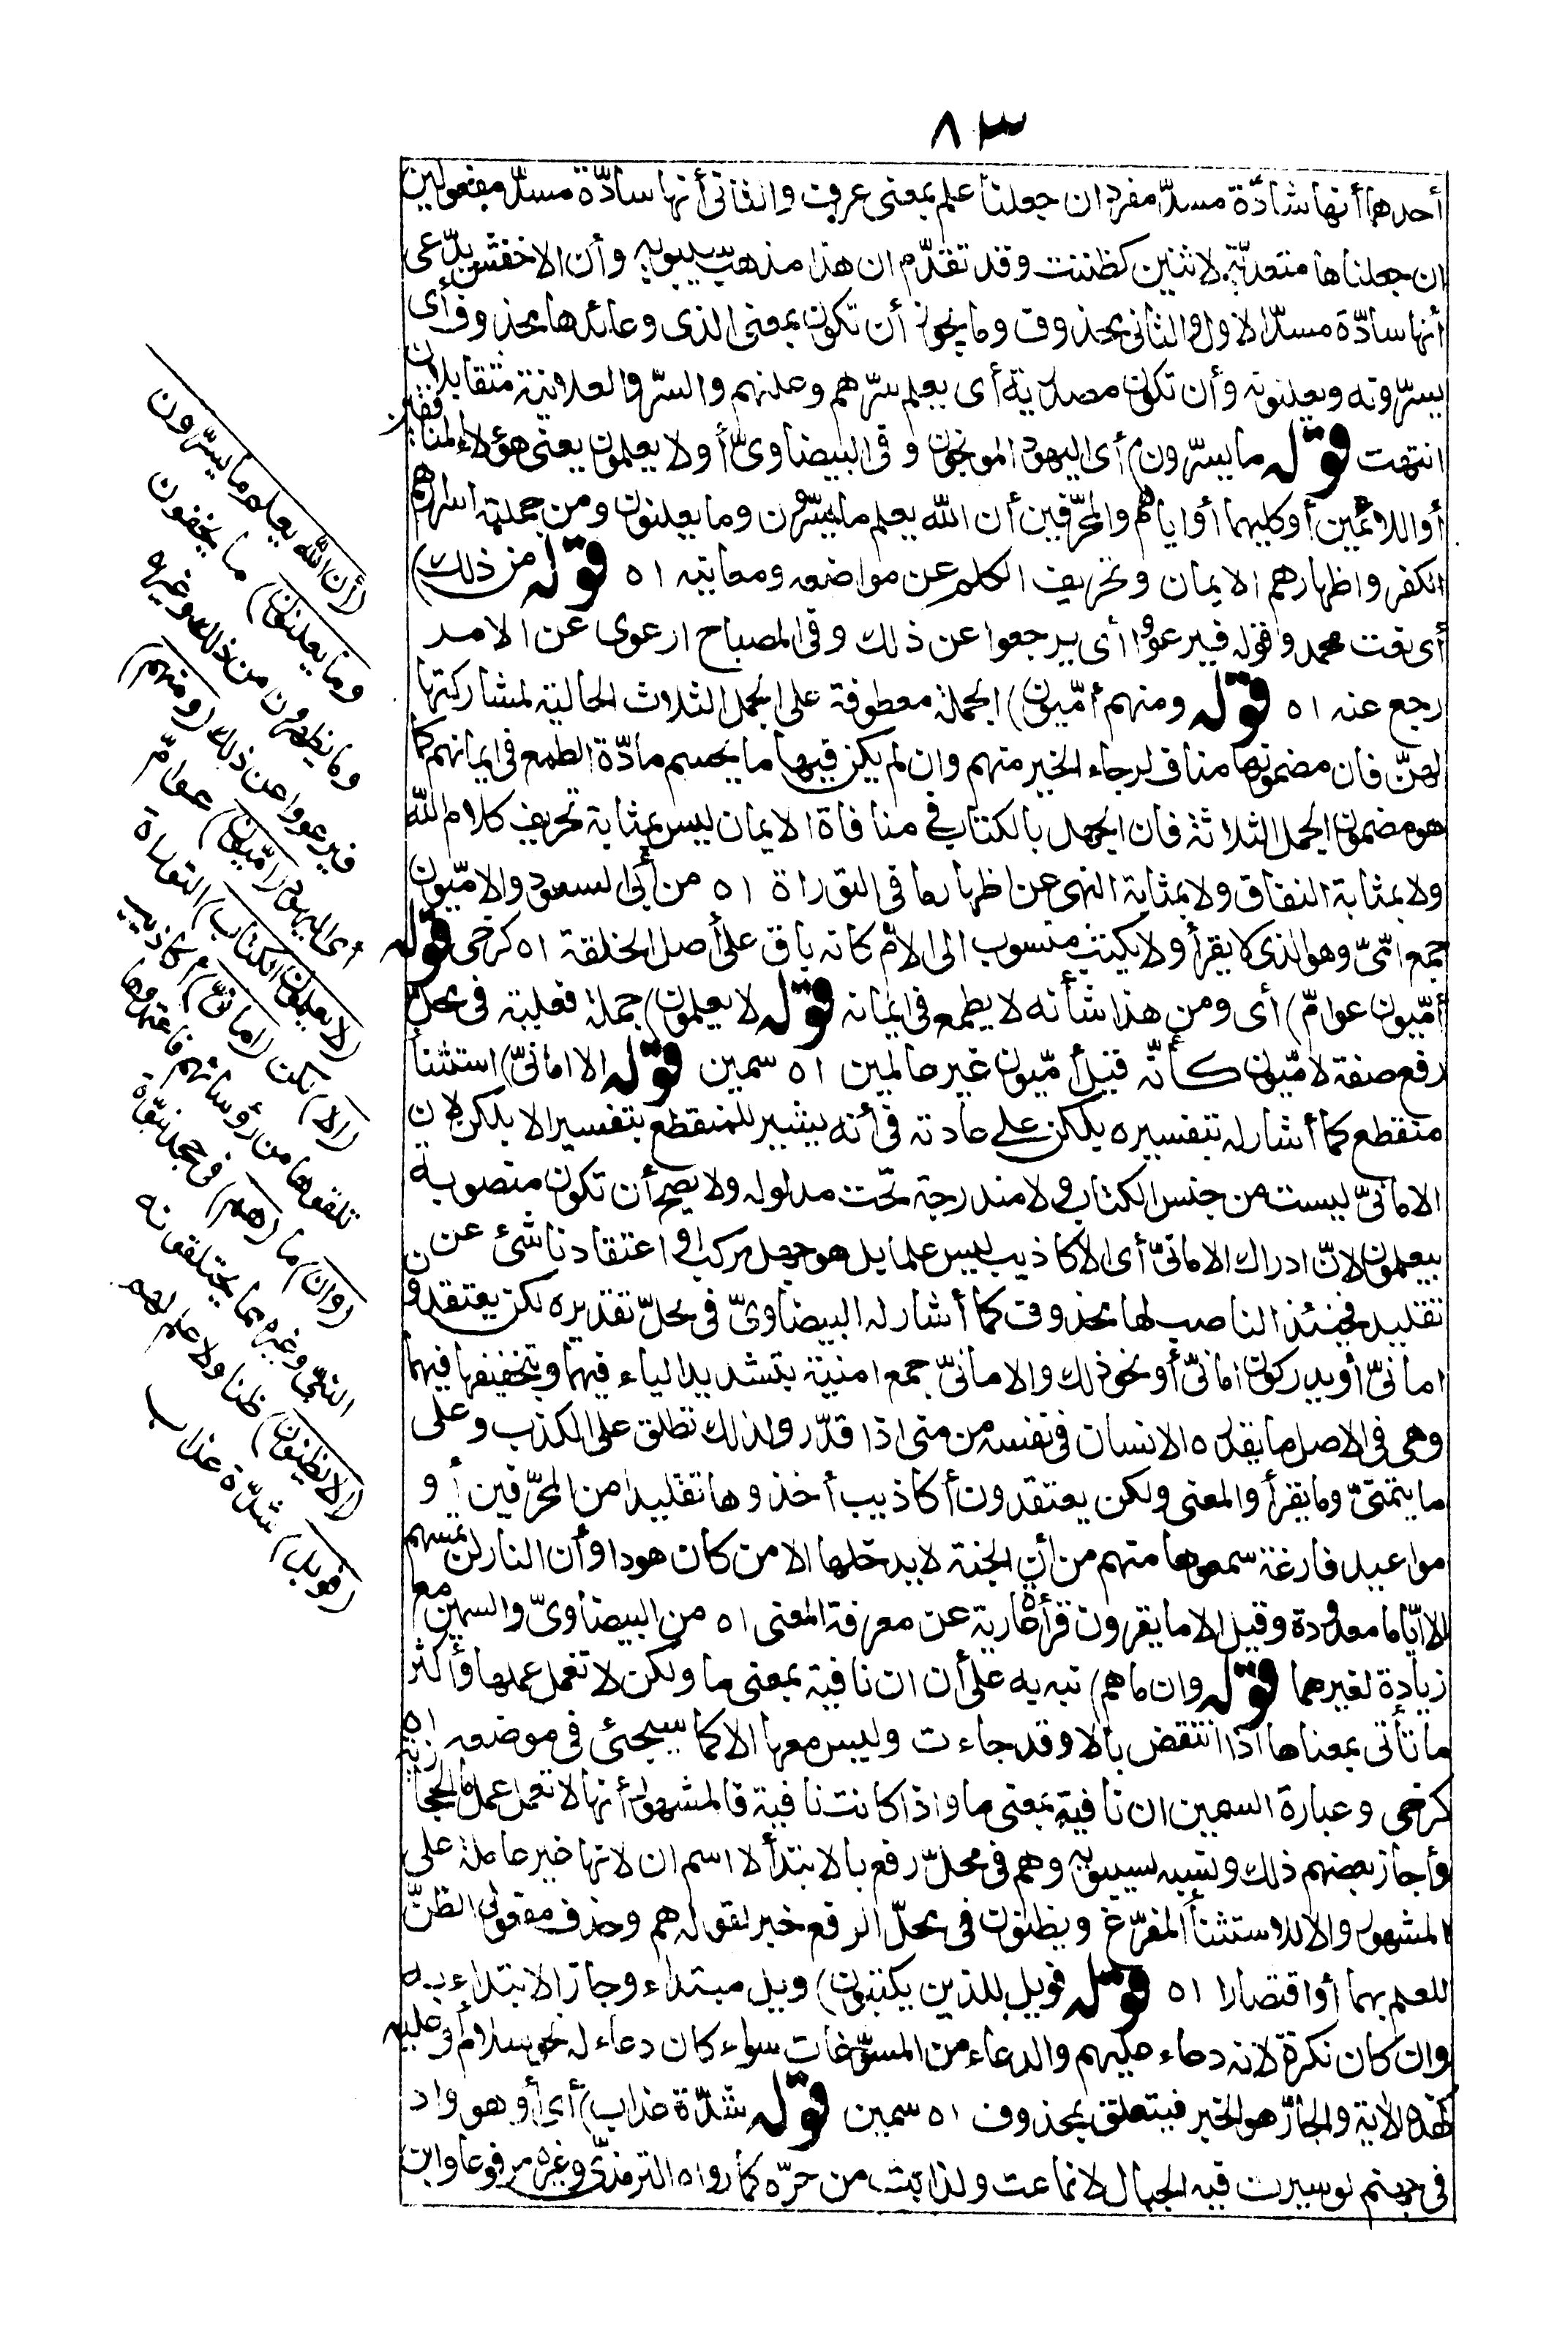 ٨٣
أحدهما أنها سادّة مسدّ مفرد ان جعلنا علم بمعنى عرف والثانى أنها سادّة مسدّ مفعولين
ان جعلناها متعدّية لاثنين كظننت وقد تقدّم ان هذا مذهب سيبويه وأن الاخفش يدّعى
أنها سادّة مسدّ الاول والثانى محذوف وما يجوز أن تكون بمعنى الذى وعائدها محذوف أى
يسرّونه ويعلنونه وأن تكون مصدرية أى يعلم سرّهم وعلنهم والسرّ والعلانية متقابلان
انتهت قوله ما يسرّون) أى اليهود الموبخون وفى البيضاوىّ أولا يعلمون يعنى هؤلاء المنافقين
أو اللائمين أو كليهما أو اياهم والمحرّفين أن الله يعلم ما يسرّون وما يعلنون ومن جملته اسرارهم
الكفر واظهارهم الايمان وتحريف الكلم عن مواضعه ومعانيه اه قوله من ذلك)
أى نعت محمد وقوله فيرعووا أى يرجعوا عن ذلك وفى المصباح ارعوى عن الامر
رجع عنه اه قوله ومنهم أمّيون) الجملة معطوفة على الجمل الثلاث الحالية لمشاركتها
لهنّ فان مضمونها مناف لرجاء الخير منهم وان لم يكن فيها ما يحسم مادّة الطمع فى ايمانهم كما
هو مضمون الجمل الثلاثة فان الجهل بالكتاب فى منافاة الايمان ليس بمثابة تحريف كلام الله
ولا بمثابة النفاق ولا بمثابة النهى عن اظهار ما فى التوراة اه من أبى السعود والامّيون
جمع امّىّ وهو الذى لا يقرأ ولا يكتب منسوب الى الامّ كانه باق على أصل الخلقة اه كرخى قوله
أمّيون عوامّ) أى ومن هذا شأنه لا يطمع فى ايمانه قوله لا يعلمون) جملة فعلية فى محلّ
رفع صفة لامّيون كأنّه قيل أمّيون غير عالمين اه سمين قوله الا امانىّ) استثنا
منقطع كما أشار له بتفسيره بلكن على عادته فى أنه يشير للمنقطع بتفسير الا بلكن لان
الامانىّ ليست من جنس الكتاب ولا مندرجة تحت مدلوله ولا يصح أن تكون منصوبة
بيعلمون لانّ ادراك الامانىّ أى الاكاذيب ليس علما بل هو جهل مركب أو اعتقاد ناشئ عن
تقليد فحينئذ الناصب لها محذوف كما أشار له البيضاوىّ فى محلّ تقديره لكن يعتقدون
امانىّ أو يدركون امانىّ أو نحو ذلك والامانىّ جمع امنية بتشديد الياء فيهما وبتخفيفها فيهما
وهى فى الاصل ما يقدره الانسان فى نفسه من منى اذا قدّر ولذلك تطلق على الكذب وعلى
ما يتمنىّ وما يقرأ والمعنى ولكن يعتقدون أكاذيب أخذوها تقليدا من المحرّفين أو
مواعيد فارغة سمعوها منهم من أن الجنة لا يدخلها الا من كان هودا وأن النار لن تمسهم
الا أيّاما معدودة وقيل الا ما يقرون قرأة عارية عن معرفة المعنى اه من البيضاوىّ والسمين مع
زيادة لغيرهما قوله وان ما هم) نبه به على أن ان نافية بمعنى ما ولكن لا تعمل عملها وأكثر
ما تأتى بمعناها اذا انتقض بالا وقد جاءت وليس معها الا كما سيجئ فى موضعه اه
كرخى وعبارة السمين ان نافية بمعنى ما واذا كانت نافية فالمشهور أنها لا تعمل عمل ما الحجازية
وأجاز بعضهم ذلك ونسبه لسيبويه وهم فى محلّ رفع بالابتدأ لا اسم ان لانها غير عاملة على
المشهور والا للاستثنأ المفرّغ ويظنون فى محلّ الرفع خبر لقوله هم وحذف مفعولى الظنّ
للعلم بهما أو اقتصارا اه قوله فويل للذين يكتبون) ويل مبتداء وجاز الابتداء به
وان كان نكرة لانه دعاء عليهم والدعاء من المسوّغات سواء كان دعاء له نحو سلام أو عليه
كهذه الاية والجارّ هو الخبر فيتعلق بمحذوف اه سمين قوله شدّة عذاب) أى أو هو واد
فى جهنم لو سيرت فيه الجبال لانماعت ولذابت من حرّه كما رواه الترمذىّ وغيره مرفوعا وابن
(أن الله يعلم ما يسرّون
وما يعلنون) ما يخفون
وما يظهرون من ذلك وغيره
فيرعووا عن ذلك (ومنهم)
أى اليهود (أمّيون) عوامّ
(لا يعلمون الكتاب) التوراة
(الا) لكن (امانىّ) أكاذيب
تلقوها من رؤسائهم فاعتمدوها
(وان) ما (هم) فى جحد نبوّة
النبىّ وغيره مما يختلقونه
(الا يظنون) ظنا ولا علم لهم
(فويل) شدّة عذاب